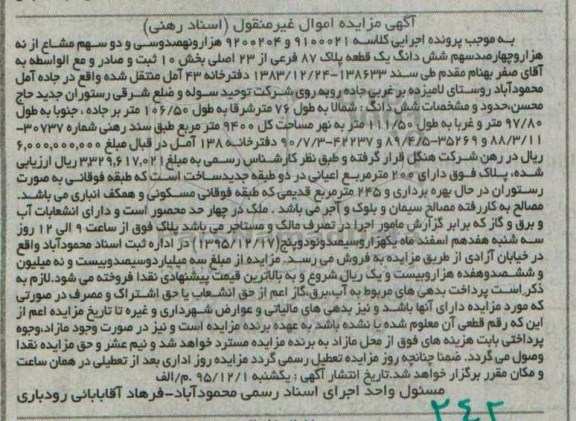 آگهی مزایده اموال غیرمنقول (اسناد رهنی)
به موجب پرونده اجرایی کلاسه ۹۱۰۰۰۲۱ و ۹۲۰۰۲۰۴ هزارونهصدوسی و دو سهم مشاع از نه
هزاروچهارصدسهم شش دانگ یک قطعه پلاک ۸۷ فرعی از ۲۳ اصلی بخش ۱۰ ثبت و صادر و مع الواسطه به
آقای صفر بهنام مقدم طی سند ۱۳۸۶۳۳-۱۳۸۳/۱۲/۲۴ دفترخانه ۴۳ آمل منتقل شده واقع در جاده آمل
محمودآباد روستای لامیزده بر غربی جاده روبه روی شرکت توحید سوله و ضلع شرقی رستوران جدید حاج
محسن،حدود و مشخصات شش دانگ : شمالا به طول ۷۶ مترشرقا به طول ۱۰۶/۵۰ متر بر جاده ، جنوبا به طول
۹۷/۸۰ متر و غربا به طول ۱۱۱/۵۰ متر به نهر مساحت کل ۹۴۰۰ متر مربع طبق سند رهنی شماره ۳۰۷۳۷-
۸۸/۳/۱۱ و ۳۵۲۶۹-۸۹/۴/۵ و ۴۲۲۳۷-۹۰/۷/۳ دفترخانه ۱۳۸ آمل در قبال مبلغ ۶,۰۰۰,۰۰۰,۰۰۰
ریال در رهن شرکت هنکل قرار گرفته و طبق نظر کارشناس رسمی به مبلغ ۳,۳۲۹,۶۱۷,۰۲۱ ریال ارزیابی
شده، پلاک فوق دارای ۲۰۰ مترمربع اعیانی در دو طبقه جدیدساخت است که طبقه فوقانی به صورت
رستوران در حال بهره برداری و ۲۴۵ مترمربع قدیمی که طبقه فوقانی مسکونی و همکف انباری می باشد.
مصالح به کار رفته مصالح سیمان و بلوک و آجر می باشد . ملک در چهار حد محصور است و دارای انشعابات آب
و برق و گاز که برابر گزارش مامور اجرا در تصرف مالک و مستاجر می باشد پلاک فوق از ساعت ۹ الی ۱۲ روز
سه شنبه هفدهم اسفند ماه یکهزاروسیصدونودوپنج(۱۳۹۵/۱۲/۱۷) در اداره ثبت اسناد محمودآباد واقع
در خیابان آزادی از طریق مزایده به فروش می رسد. مزایده از مبلغ سه میلیاردوسیصدوبیست و نه میلیون
و ششصدوهفده هزاروبیست و یک ریال شروع و به بالاترین قیمت پیشنهادی نقدا فروخته می شود.لازم به
ذکر است پرداخت بدهی های مربوط به آب،برق،گاز اعم از حق انشعاب یا حق اشتراک و مصرف در صورتی
که مورد مزایده دارای آنها باشد و نیز بدهی های مالیاتی و عوارض شهرداری و غیره تا تاریخ مزایده اعم از
این که رقم قطعی آن معلوم شده یا نشده باشد به عهده برنده مزایده است و نیز در صورت وجود مازاد،وجوه
پرداختی بابت هزینه های فوق از محل مازاد به برنده مزایده مسترد خواهد شد و نیم عشر و حق مزایده نقدا
وصول می گردد. ضمنا چنانچه روز مزایده تعطیل رسمی گردد مزایده روز اداری بعد از تعطیلی در همان ساعت
و مکان مقرر برگزار خواهد شد.تاریخ انتشار آگهی : یکشنبه ۹۵/۱۲/۱ .م/الف
مسئول واحد اجرای اسناد رسمی محمودآباد-فرهاد آقابابائی رودباری
۲۴۲